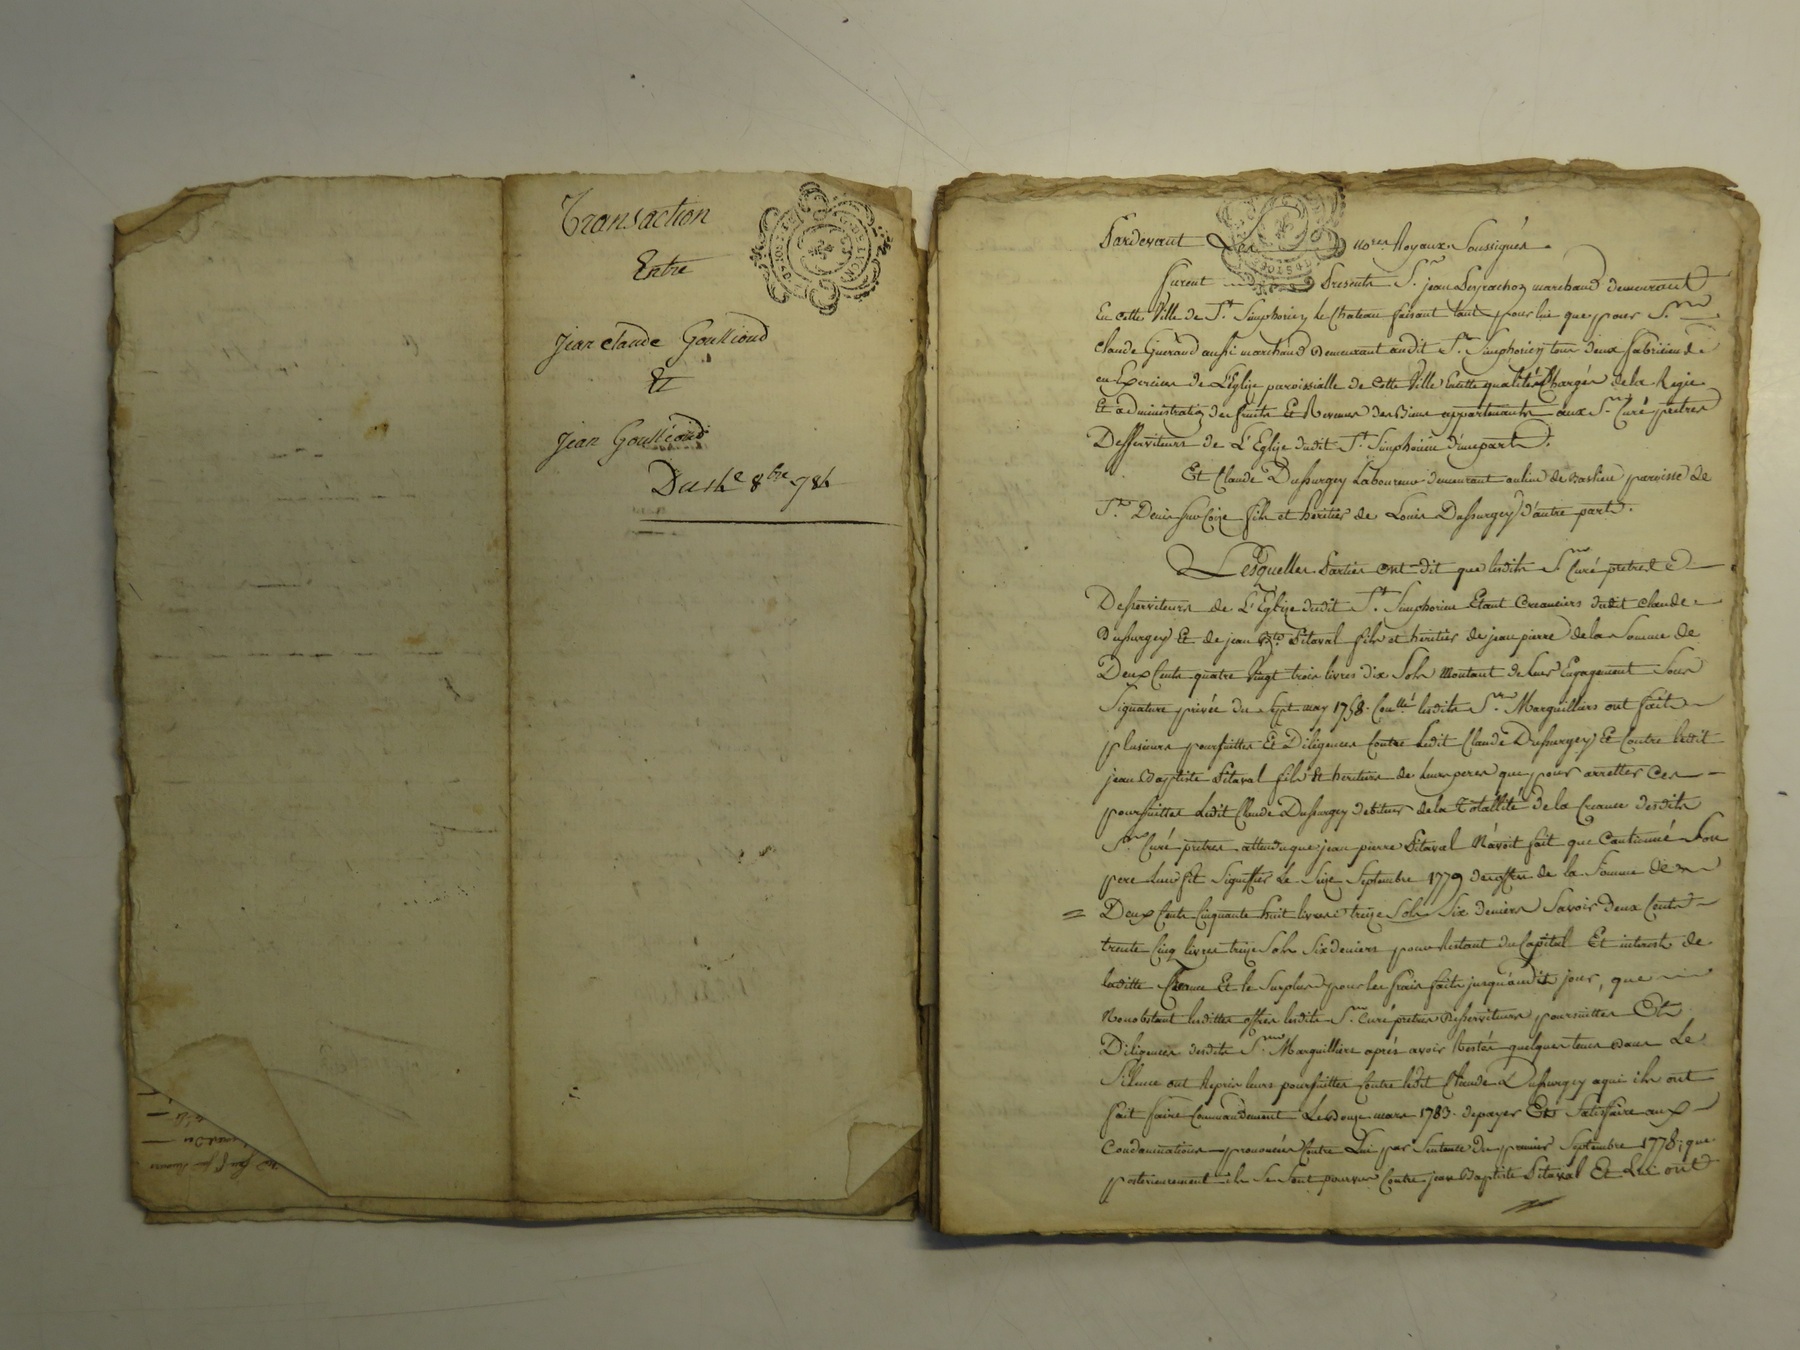 Transaction
Entre
Jean claude Goullioud
&
Jean Goullioud
Du 8bre 784
Pardevant Les nores Royaux Soussignés
furent Presents Sr. jean marchand demeurant
En cette Ville de St. Simphorien le Chateau faisant tant pour lui que pour Sr.
claude Guerand aussi marchand Demeurant audit St. Simphorien tous deux fabriciens
en Exercice de L'Eglise paroissialle de Cette Ville Enette qualité Chargés de la Regie
Et administration des fruits Et Revenus des Biens appartenants aux Srs. Curé pretres
Desserviteurs de L'Eglise dudit St. Simphorien d'une part.
Et Claude Dussurgey Laboureur demeurant au lieu de paroisse de
St. Denis sur Coize fils et heritier de Louis Dussurgey d'autre part.
Lesquelles Parties ont dit que lesdits Srs. Curé pretres Et
Desserviteurs de L'Eglise dudit St. Simphorien Etant Creanciers dudit Claude
Dussurgey Et de jean Bte. Pitaval fils et heritier de jean pierre de la Somme de
Deux Cents quatre Vingt trois livres dix Sols Montant de leur Engagement Sous
Signature privée du Sept may 1758. Conllé lesdits Srs. Marguilliers ont fait
plusieurs poursuittes Et Diligences Contre ledit Claude Dussurgey Et Contre ledit
jean Baptiste Pitaval fils Et heritiers de leurs peres que pour arretter Ces
poursuittes ledit Claude Dussurgey debiteur de la Totallité de la Creance desdits
Srs. Curé pretres attendu que jean pierre Pitaval N'avoit fait que Cautionné Son
pere leur fit Signiffier le Seize Septembre 1779 des offres de la Somme de
Deux Cents Cinquante huit livres treize Sols Six deniers Savoir deux Cents
trente Cinq livres treize Sols Six deniers pour Restant du Capital Et interest de
laditte Creance Et le Surplus pour les frais faits jusqu'audit jour, que
Nonobstant lesdittes offres lesdits Srs. Curé pretres Desserviteurs poursuittes Et
Diligences desdits Srs. Marguilliers aprés avoir Restés quelques tems dans Le
Silence ont Repris leurs poursuittes Contre ledit Claude Dussurgey a qui ils ont
fait faire Commandement Le Douze mars 1783. de payer Et Satisfaire aux
Condamnations prononcées Contre Lui par Sentence du premier Septembre 1778; que
posterieurement ils se Sont pourvus Contre jean Baptiste Pitaval Et Lui ont